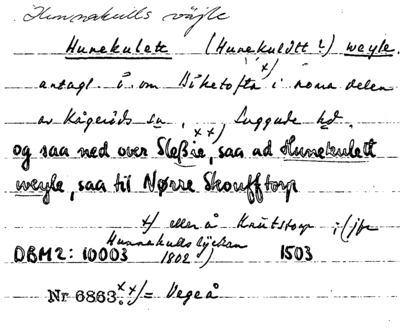 Hunnekulls väyle
Hunekulett (Hunekuldtt?) weyle.
antagl i om Diketofta x) i norra delen
av Kågeröds sn, Luggude hd.
og saa ned over Sleßie xx), saa ad Hunekulett
weyle, saa til Nørre Skoufftorp
x) eller å Knutstorp; (jfr
Hunnekullslyckan
DBM2: 10003 1802) 1503
Nr 6863. xx) = Vegeå